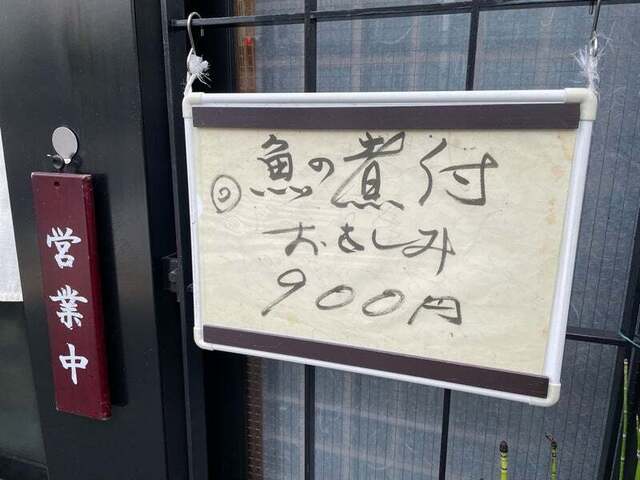 営業中
◎魚の煮付
おもしみ
900円